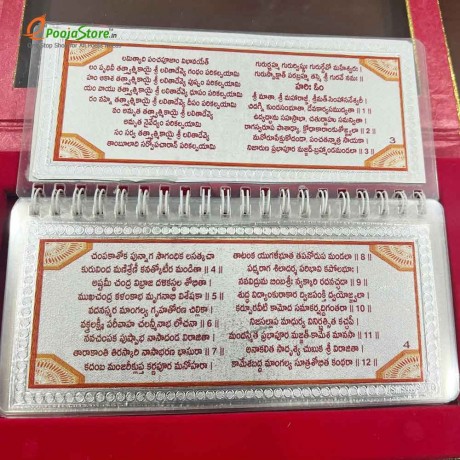 PoojaStore.in
లమిత్యాది పంచపూజాం విభావయేత్
లం పృథివీ తత్త్వాత్మికాయై శ్రీ లలితాదేవ్యై గంధం పరికల్పయామి
హం ఆకాశ తత్త్వాత్మికాయై శ్రీ లలితాదేవ్యై పుష్పం పరికల్పయామి
యం వాయు తత్త్వాత్మికాయై శ్రీ లలితాదేవ్యై ధూపం పరికల్పయామి
రం వహ్ని తత్త్వాత్మికాయై శ్రీ లలితాదేవ్యై దీపం పరికల్పయామి
వం అమృత తత్త్వాత్మికాయై శ్రీ లలితాదేవ్యై
అమృత నైవేద్యం పరికల్పయామి
సం సర్వ తత్త్వాత్మికాయై శ్రీ లలితాదేవ్యై
తాంబూలాది సర్వోపచారాన్ పరికల్పయామి
గురుర్బ్రహ్మ గురుర్విష్ణుః గురుర్దేవో మహేశ్వరః |
గురుస్సాక్షాత్ పరబ్రహ్మ తస్మై శ్రీ గురవే నమః ||
హరిః ఓం
శ్రీ మాతా, శ్రీ మహారాజ్ఞీ, శ్రీమత్-సింహాసనేశ్వరీ |
చిదగ్ని కుండసంభూతా, దేవకార్యసముద్యతా || 1 ||
ఉద్యద్భాను సహస్రాభా, చతుర్బాహు సమన్వితా |
రాగస్వరూప పాశాఢ్యా, క్రోధాకారాంకుశోజ్జ్వలా || 2 ||
మనోరూపేక్షుకోదండా, పంచతన్మాత్ర సాయకా |
నిజారుణ ప్రభాపూర మజ్జద్-బ్రహ్మాండమండలా || 3 ||
3
చంపకాశోక పున్నాగ సౌగంధిక లసత్కచా
కురువింద మణిశ్రేణీ కనత్కోటీర మండితా || 4 ||
అష్టమీ చంద్ర విభ్రాజ దళికస్థల శోభితా |
ముఖచంద్ర కళంకాభ మృగనాభి విశేషకా || 5 ||
వదనస్మర మాంగల్య గృహతోరణ చిల్లికా |
వక్త్రలక్ష్మీ పరీవాహ చలన్మీనాభ లోచనా || 6 ||
నవచంపక పుష్పాభ నాసాదండ విరాజితా |
తారాకాంతి తిరస్కారి నాసాభరణ భాసురా || 7 ||
కదంబ మంజరీక్లుప్త కర్ణపూర మనోహరా |
తాటంక యుగళీభూత తపనోడుప మండలా || 8 ||
పద్మరాగ శిలాదర్శ పరిభావి కపోలభూః |
నవవిద్రుమ బింబశ్రీ న్యక్కారి రదనచ్ఛదా || 9 ||
శుద్ధ విద్యాంకురాకార ద్విజపంక్తి ద్వయోజ్జ్వలా |
కర్పూరవీటి కామోద సమాకర్షద్దిగంతరా || 10 ||
నిజసల్లాప మాధుర్య వినిర్భర్త్సిత కచ్ఛపీ |
మందస్మిత ప్రభాపూర మజ్జత్-కామేశ మానసా || 11 ||
అనాకలిత సాదృశ్య చుబుక శ్రీ విరాజితా |
కామేశబద్ధ మాంగల్య సూత్రశోభిత కంధరా || 12 ||
4